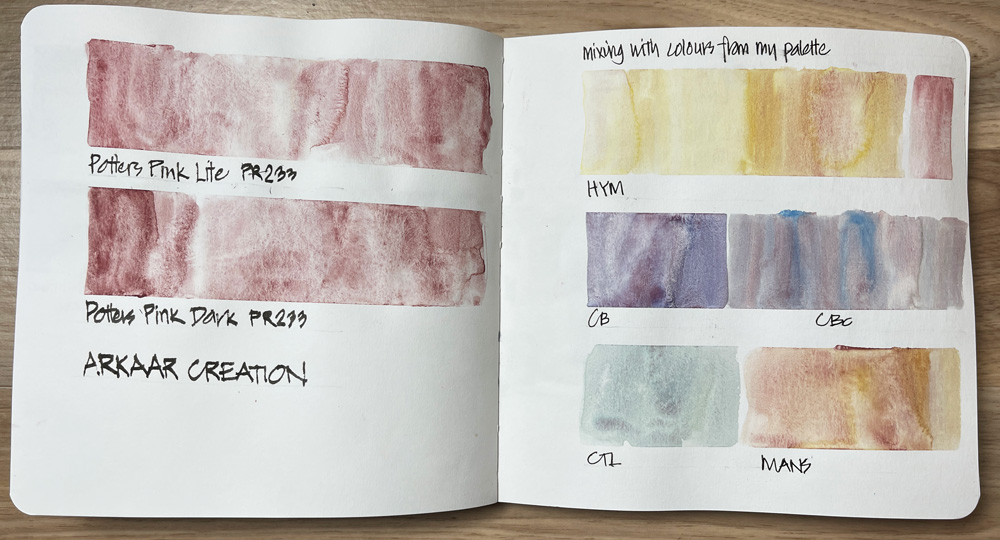 Potters Pink Lite PR233
Potters Pink Dark PR233
ARKAAR CREATION
mixing with colours from my palette
HYM
CB
CBC
CTL
MANS